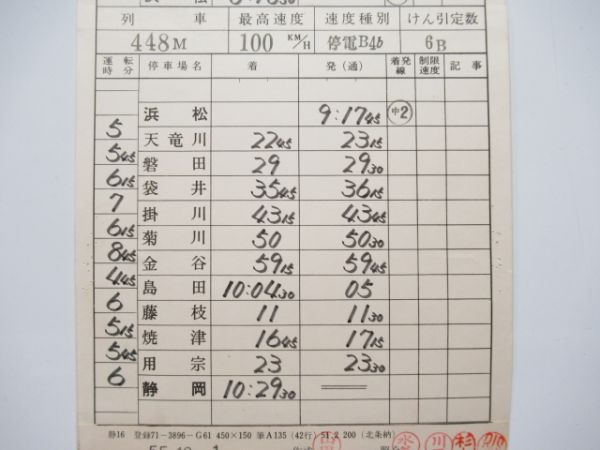 浜 松
列 車 最高速度 速度種別 けん引定数
448M 100 KM/H 停電B46 6B
運転時分 停車場名 着 発（通） 着発線 制限速度 記事
浜 松 9:17 45 中2
5
天 竜 川 22 45 23 15
5 45
磐 田 29 29 30
6 15
袋 井 35 45 36 15
7
掛 川 43 15 43 45
6 15
菊 川 50 50 30
8 45
金 谷 59 15 59 45
4 45
島 田 10:04 30 05
6
藤 枝 11 11 30
5 15
焼 津 16 45 17 15
5 45
用 宗 23 23 30
6
静 岡 10:29 30
静16 登録71-3896-G61 450×150 筆A135 (42行) 51.2 200 (北条納)